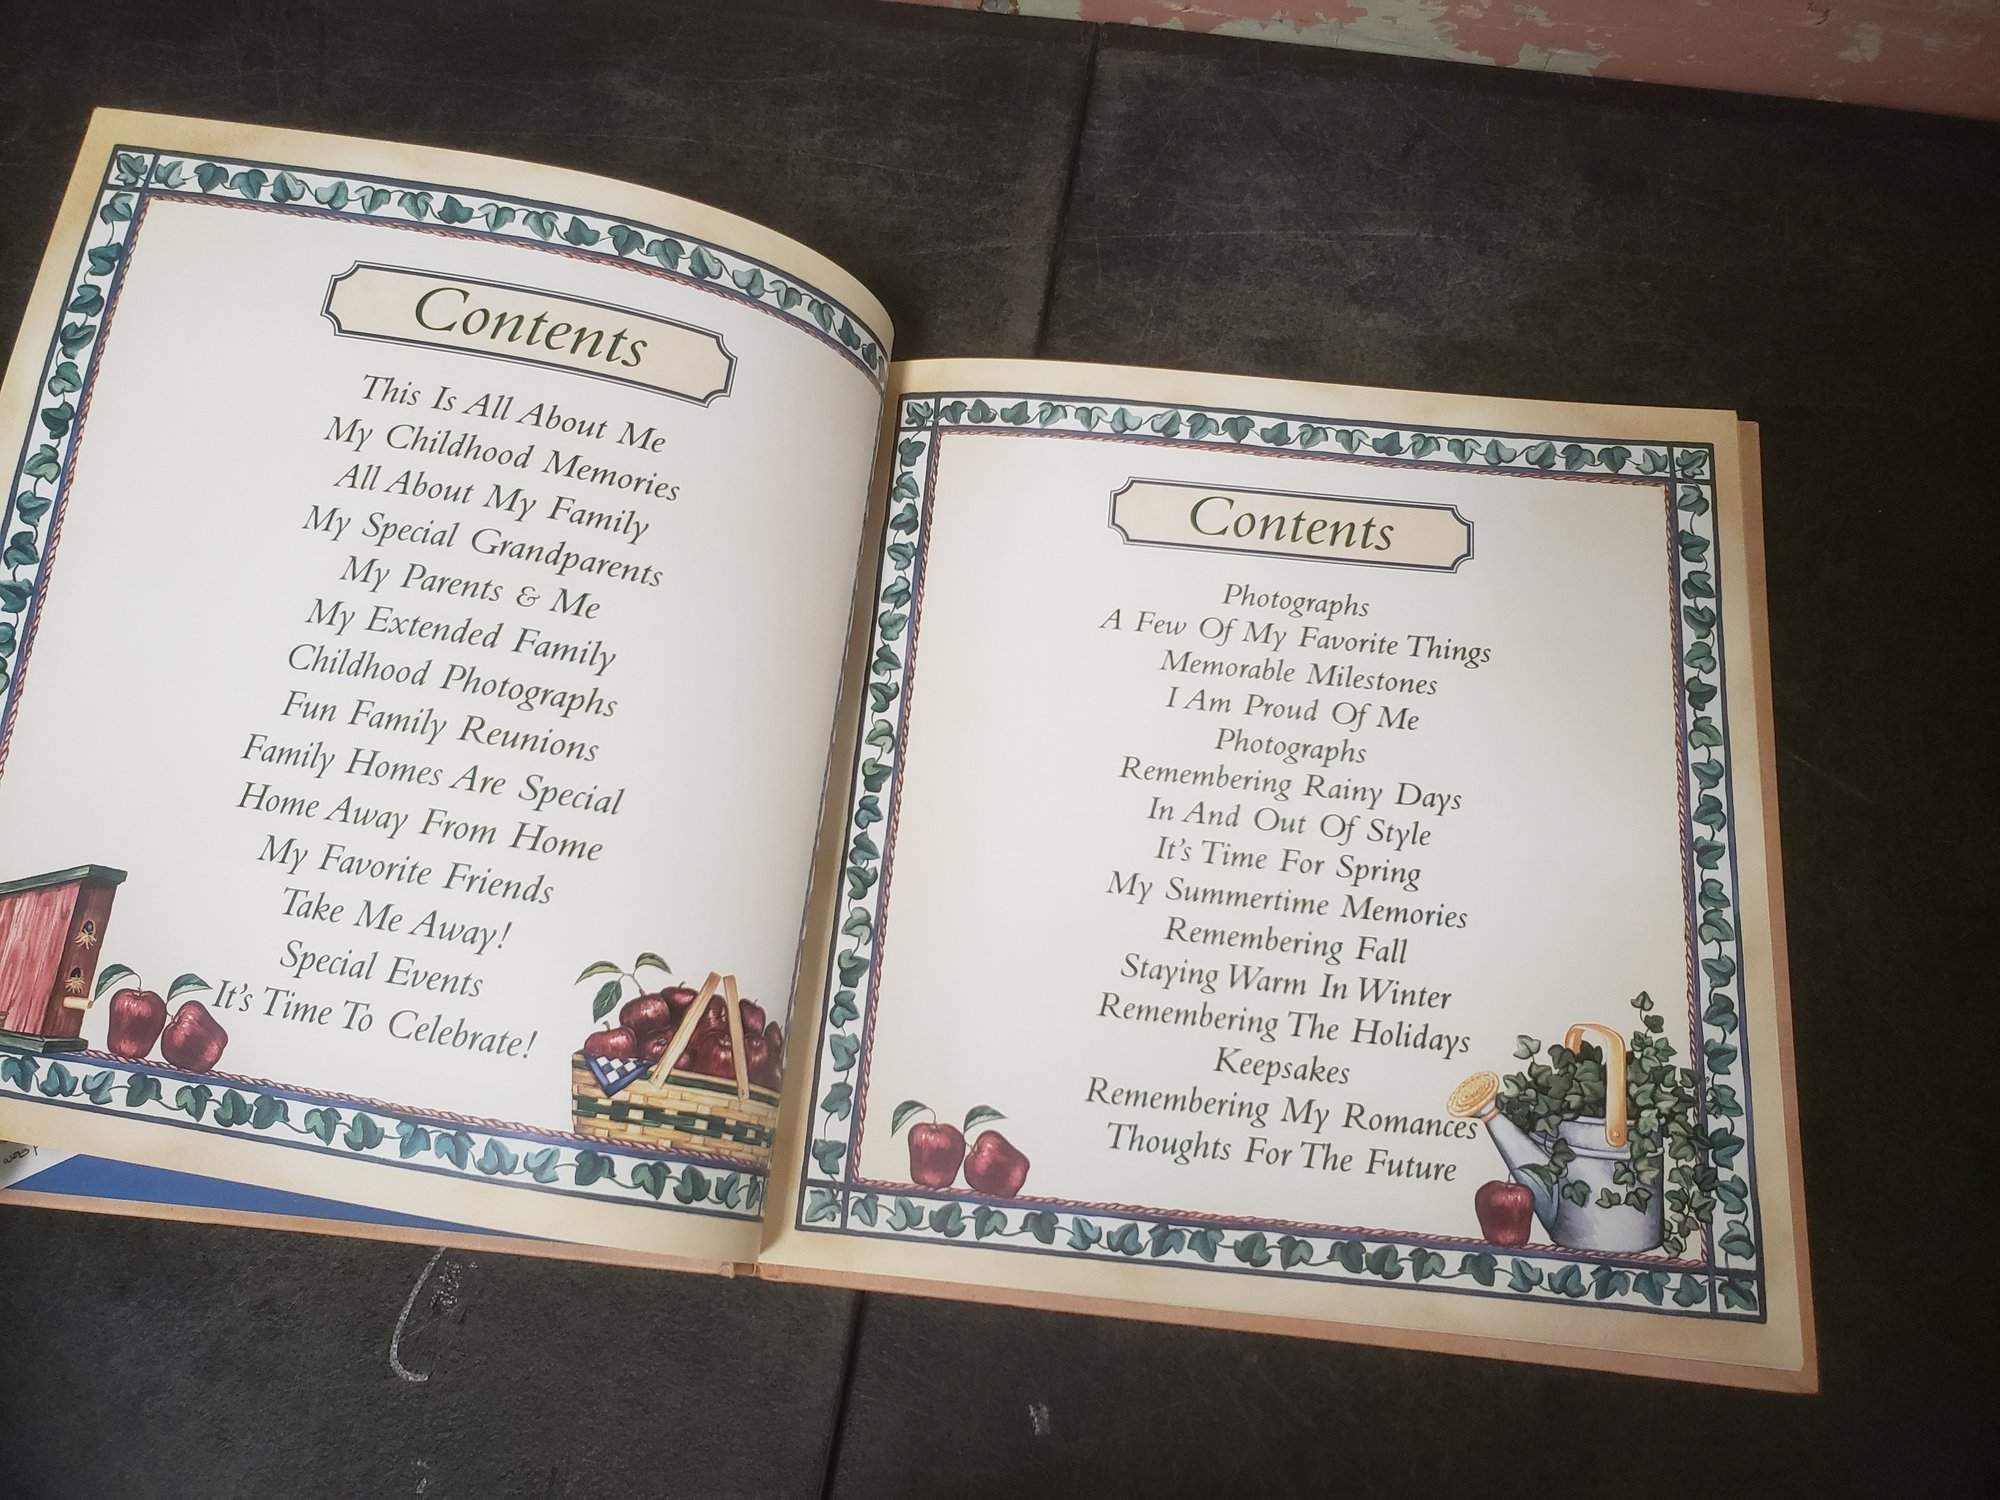 Contents
This Is All About Me
My Childhood Memories
All About My Family
My Special Grandparents
My Parents & Me
My Extended Family
Childhood Photographs
Fun Family Reunions
Family Homes Are Special
Home Away From Home
My Favorite Friends
Take Me Away!
Special Events
It's Time To Celebrate!
Contents
Photographs
A Few Of My Favorite Things
Memorable Milestones
I Am Proud Of Me
Photographs
Remembering Rainy Days
In And Out Of Style
It's Time For Spring
My Summertime Memories
Remembering Fall
Staying Warm In Winter
Remembering The Holidays
Keepsakes
Remembering My Romances
Thoughts For The Future